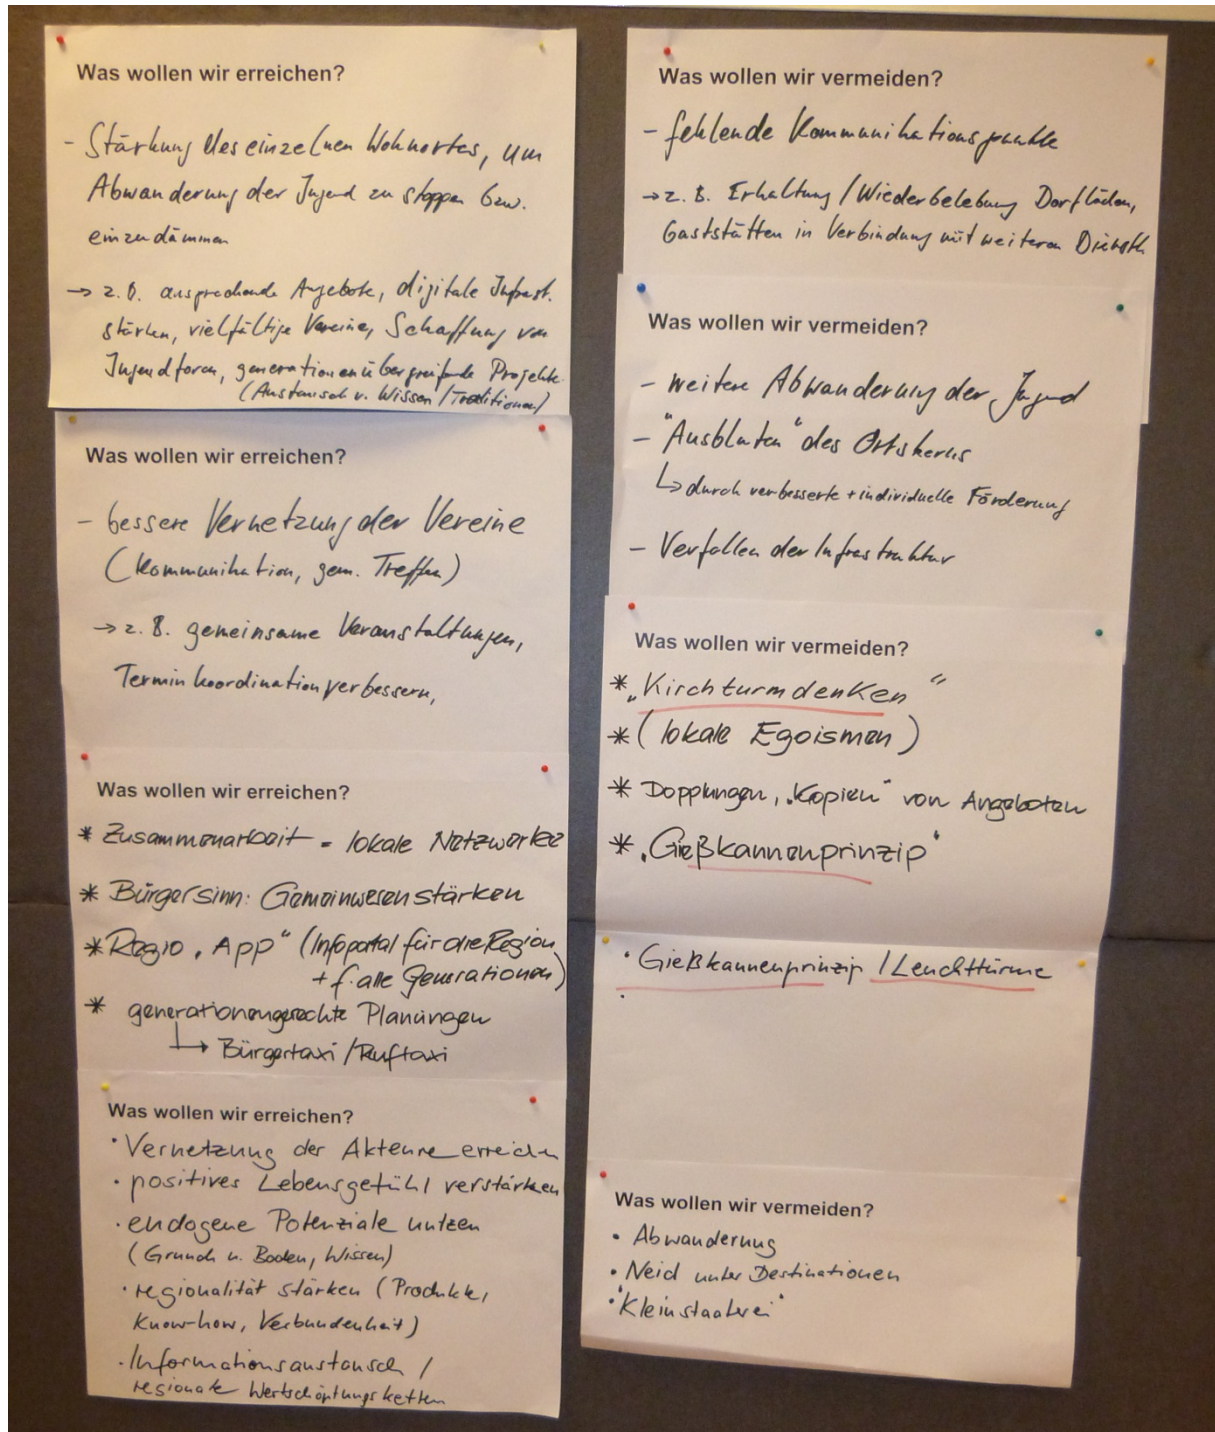 Was wollen wir erreichen?
- Stärkung des einzelnen Wohnortes, um
Abwanderung der Jugend zu stoppen bzw.
einzudämmen
→ z.B. ansprechende Angebote, digitale Infrast.
stärken, vielfältige Vereine, Schaffung von
Jugendforen, generationenübergreifende Projekte
(Austausch v. Wissen / Traditionen)
Was wollen wir erreichen?
- bessere Vernetzung der Vereine
(Kommunikation, gem. Treffen)
→ z.B. gemeinsame Veranstaltungen,
Terminkoordination verbessern,
Was wollen wir erreichen?
* Zusammenarbeit - lokale Netzwerke
* Bürgersinn: Gemeinwesen stärken
* Regio „App" (Infoportal für die Region
+ f. alle Generationen)
* generationengerechte Planungen
↳ Bürgertaxi / Ruftaxi
Was wollen wir erreichen?
· Vernetzung der Akteure erreichen
· positives Lebensgefühl verstärken
· endogene Potenziale nutzen
(Grund u. Boden, Wissen)
· regionalität stärken (Produkte,
Know-how, Verbundenheit)
· Informationsaustausch /
regionale Wertschöpfungsketten
Was wollen wir vermeiden?
- fehlende Kommunikationspunkte
→ z.B. Erhaltung / Wiederbelebung Dorfläden,
Gaststätten in Verbindung mit weiteren Dienstl.
Was wollen wir vermeiden?
- weitere Abwanderung der Jugend
- "Ausbluten" des Ortskerns
↳ durch verbesserte + individuelle Förderung
- Verfallen der Infrastruktur
Was wollen wir vermeiden?
* „Kirchturmdenken"
* (lokale Egoismen)
* Dopplungen, „Kopien" von Angeboten
* „Gießkannenprinzip"
· Gießkannenprinzip / Leuchttürme
·
Was wollen wir vermeiden?
· Abwanderung
· Neid unter Destinationen
· "Kleinstaaterei"